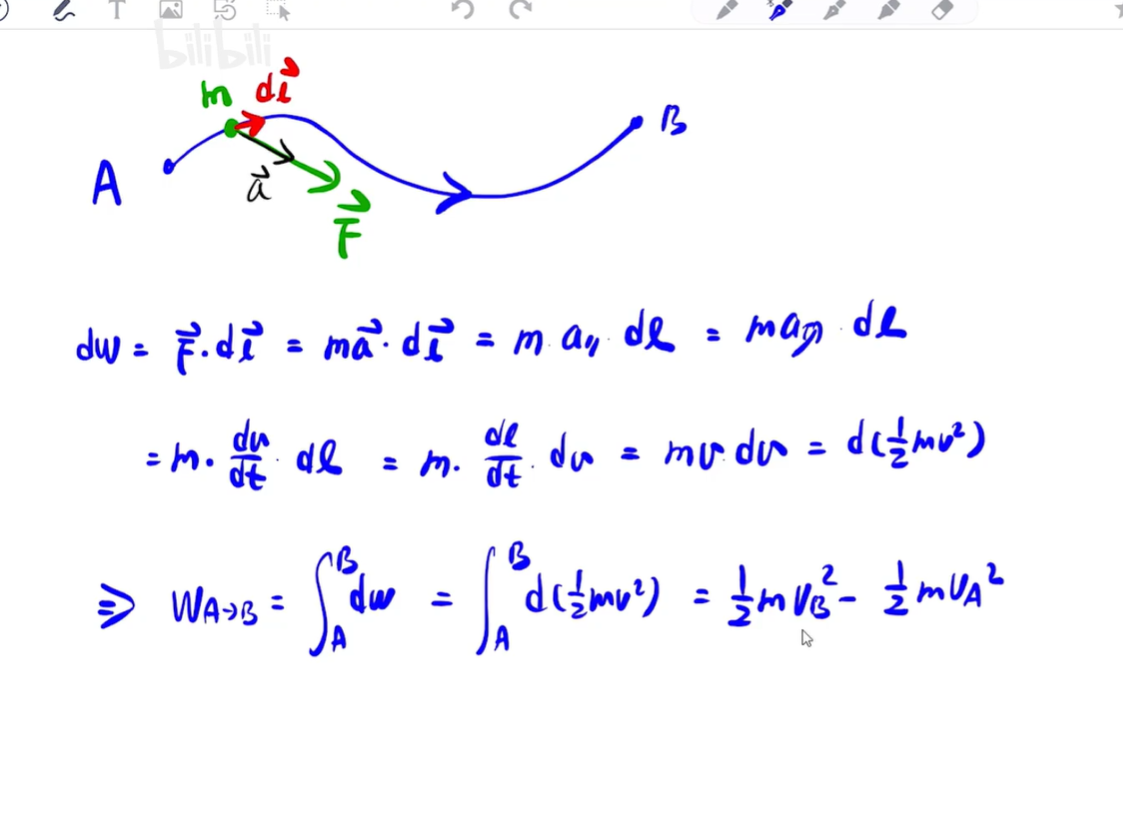 T
bilibili
m dl⃗
A
B
a⃗
F⃗
dw = F⃗·dl⃗ = ma⃗·dl⃗ = m·a∥·dl = maη·dl
= m·du/dt·dl = m·dl/dt·du = mυ·dυ = d(½mυ²)
⇒ W_{A→B} = ∫_A^B dw = ∫_A^B d(½mυ²) = ½mυ_B² - ½mυ_A²